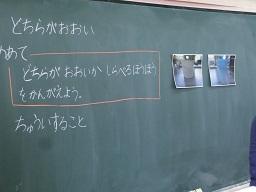 どちらがおおい
めあて
どちらが おおいか しらべるほうほう
をかんがえよう。
ちゅういすること